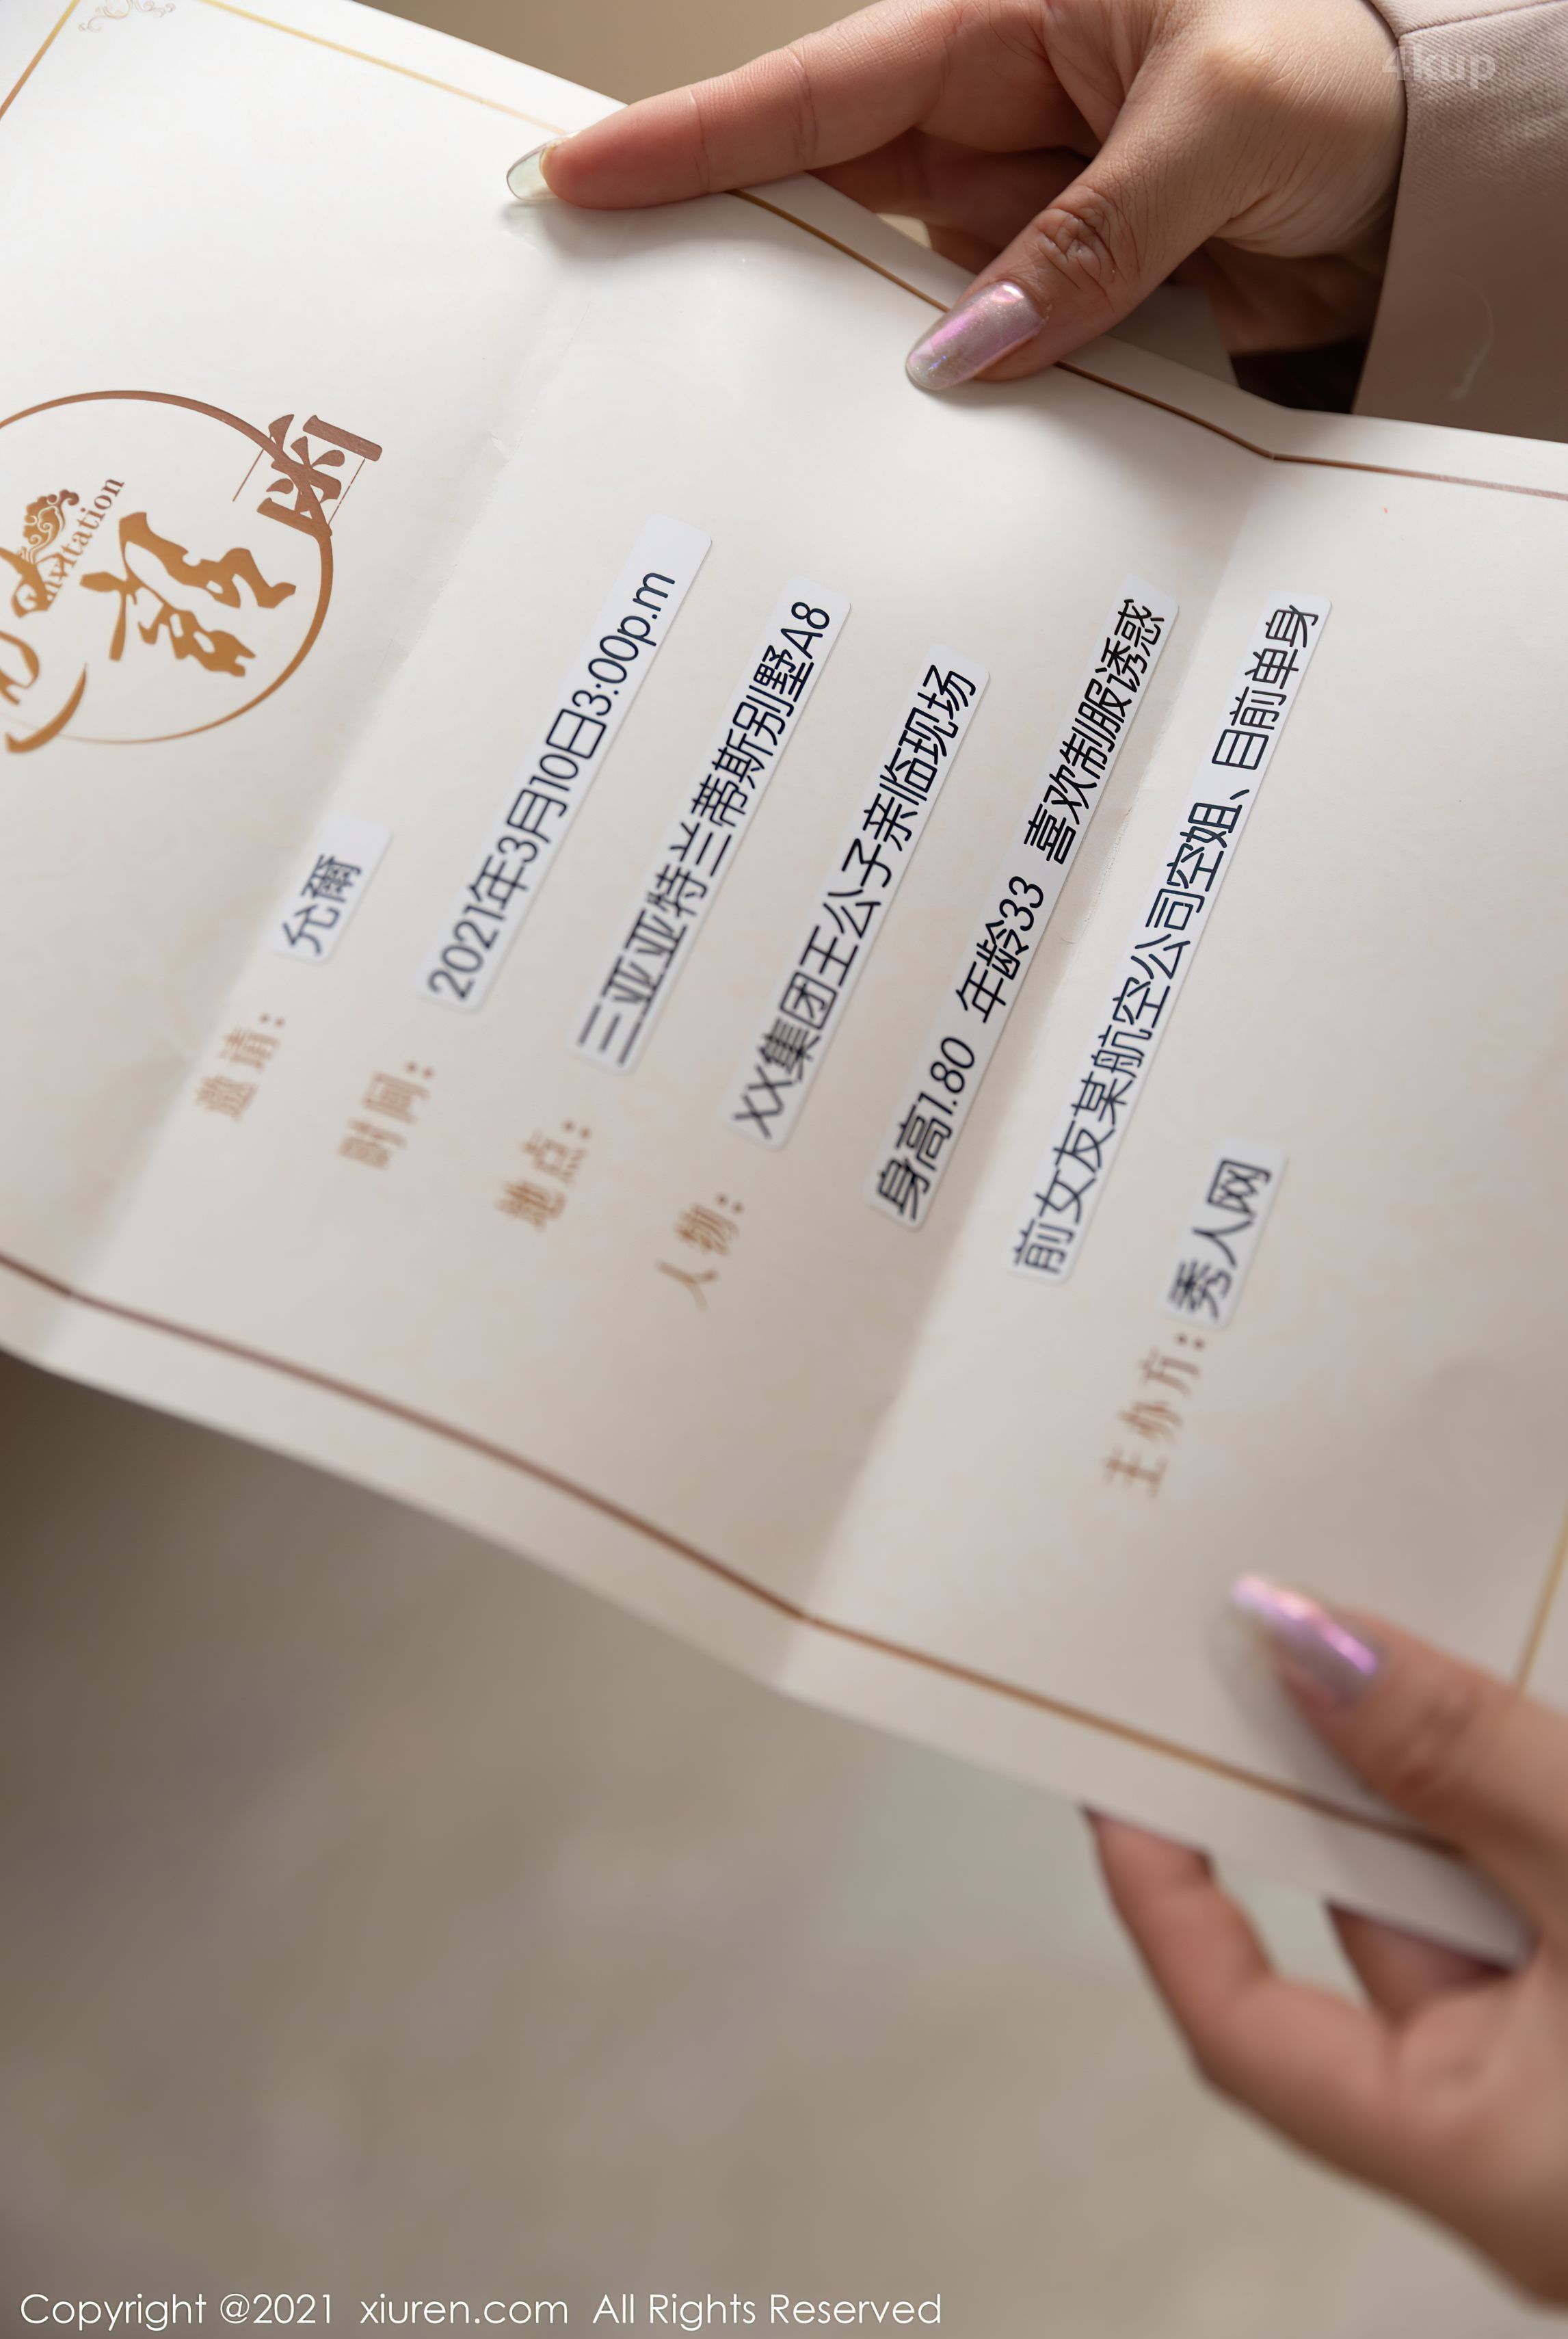 4kup
Invitation
邀请：允爾
时间：2021年3月10日3:00p.m
地点：三亚亚特兰蒂斯别墅A8
人物：XX集团王公子亲临现场
身高1.80 年龄33 喜欢制服诱惑
前女友某航空公司空姐、目前单身
主办方：秀人网
Copyright @2021 xiuren.com All Rights Reserved